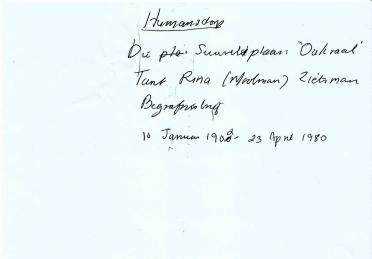 Humansdorp
Die plo Suurveldplaas "Oukraal"
Tant Rina (Moolman) Zietsman
Begrafnisbrief
10 Januarie 1908 - 23 April 1980